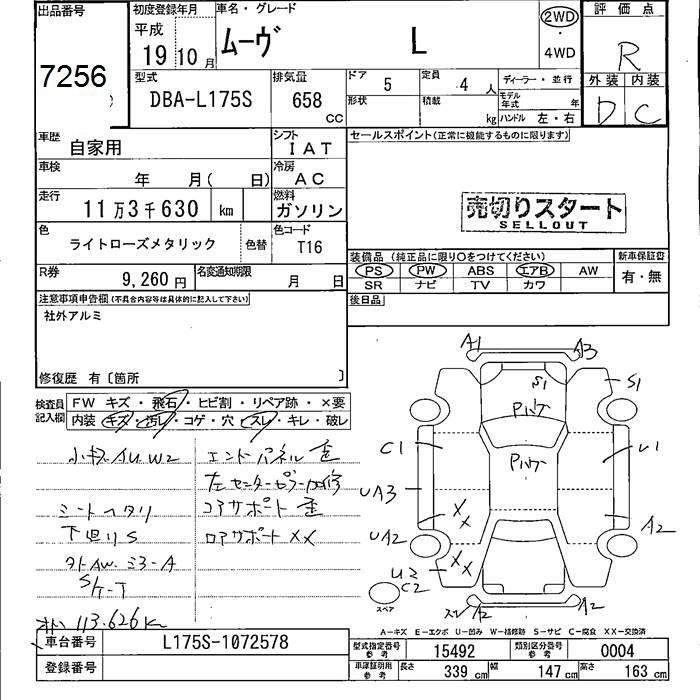 出品番号
7256
初度登録年月
平成
19 10 月
車名・グレード
ムーヴ L
2WD
・
4WD
評価点
R
外装 内装
D C
型式
DBA-L175S
排気量
658
CC
ドア 5
定員 4 人
ディーラー・並行
形状
積載 kg
モデル年式 年
ハンドル 左・右
車歴
自家用
シフト
IAT
セールスポイント(正常に機能するものに限ります)
車検
年 月( 日)
冷房
AC
走行
11万3千630 km
燃料
ガソリン
売切りスタート
SELLOUT
色
ライトローズメタリック
色替
色コード
T16
装備品(純正品に限り○をつけてください)
新車保証書
PS PW ABS エアB AW
SR ナビ TV カワ
有・無
R券
9,260円
名変通知期限
月 日
後日品
注意事項申告欄(不具合内容等は具体的に記入して下さい)
社外アルミ
修復歴 有〔箇所 〕
検査員記入欄
FW キズ・飛石・ヒビ割・リペア跡・×要
内装 キズ・汚レ・コゲ・穴・スレ・キレ・破レ
小キズ AU W2
エンドパネル歪
左センターピラー
シートヘタリ
コアサポート歪
下回りS
ロアサポートXX
外AW ミラーA
113.626K
A1
A3
S1
S1
PハケT
C1
U1
PハケT
UA3
XX
UA2
A2
XX
U2
C2
スペア
スレ A2
A2
A-キズ E-エクボ U-凹み W-補修跡 S-サビ C-腐食 XX-交換済
車台番号
L175S-1072578
型式指定番号参考
15492
類別区分番号参考
0004
登録番号
車庫証明用参考
長さ 339 cm
幅 147 cm
高さ 163 cm